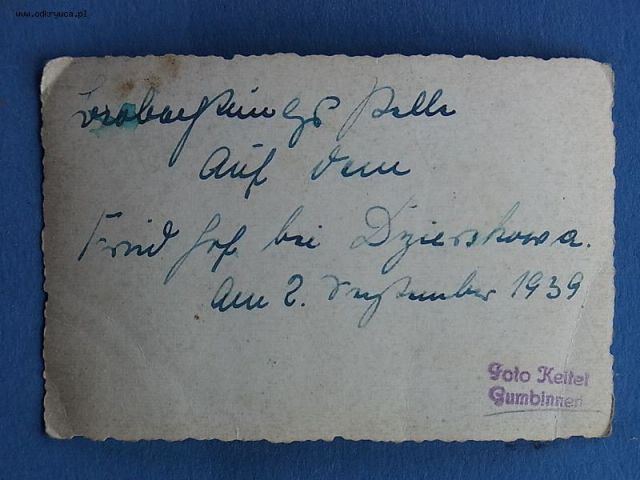 www.odkrywca.pl
Beobachtungs stelle
Auf dem
Friedhof bei Dzierskowa.
Am 2. September 1939
Foto Keitel
Gumbinnen